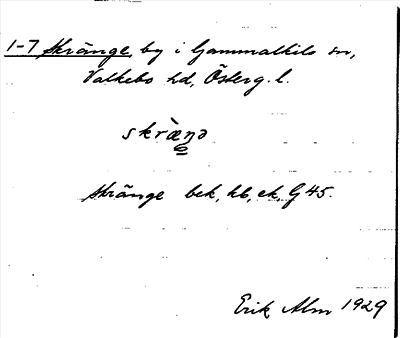 1-7 Skränge, by i Gammalkils sn,
Valkebo hd, Österg. l.
skræ̀ŋə
Skränge bek, kb, ek, G 45.
Erik Alm 1929